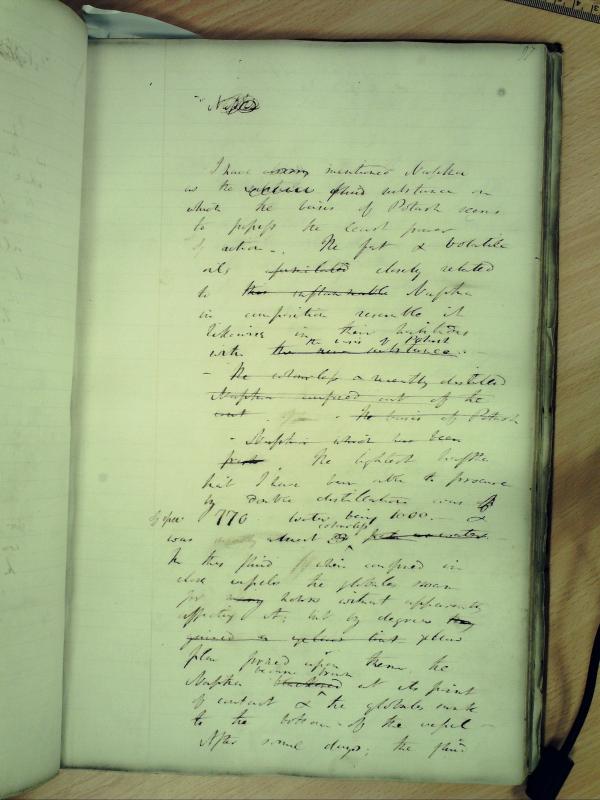 97
Naptha
I have mentioned Naptha
as the fluid substance on
which the basis of Potash seems
to possess the least power
of action -. The fat & volatile
oils closely related
to this inflammable Naptha
in composition resemble it
likewise in their habitudes
the basis of Potash
with the new substance. -
- The colourless & recently distilled
Naptha confined out of the
The basis of Potash
- Naptha which has been
The lightest naptha
that I have been able to procure
by double distillation was of
770 water being 1000. - &
colourless
was almost as water
In this fluid when confined in
close vessels the globules swam
for many hours without apparently
affecting it; but by degrees they
gained a yellow tint yellow
upon them the
became brown
Naptha at its point
of contact & the globules sunk
to the bottom of the vessel -
After some days; the